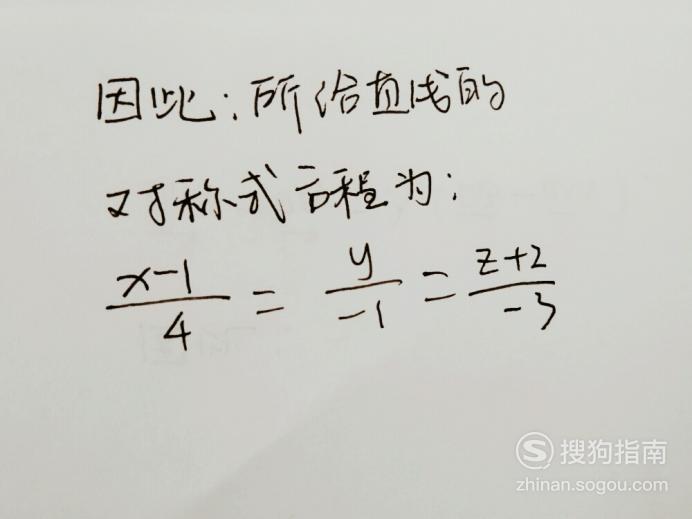 因此:所给直线的
对称式方程为:
x-1/4 = y/-1 = z+2/-3
搜狗指南
zhinan.sogou.com